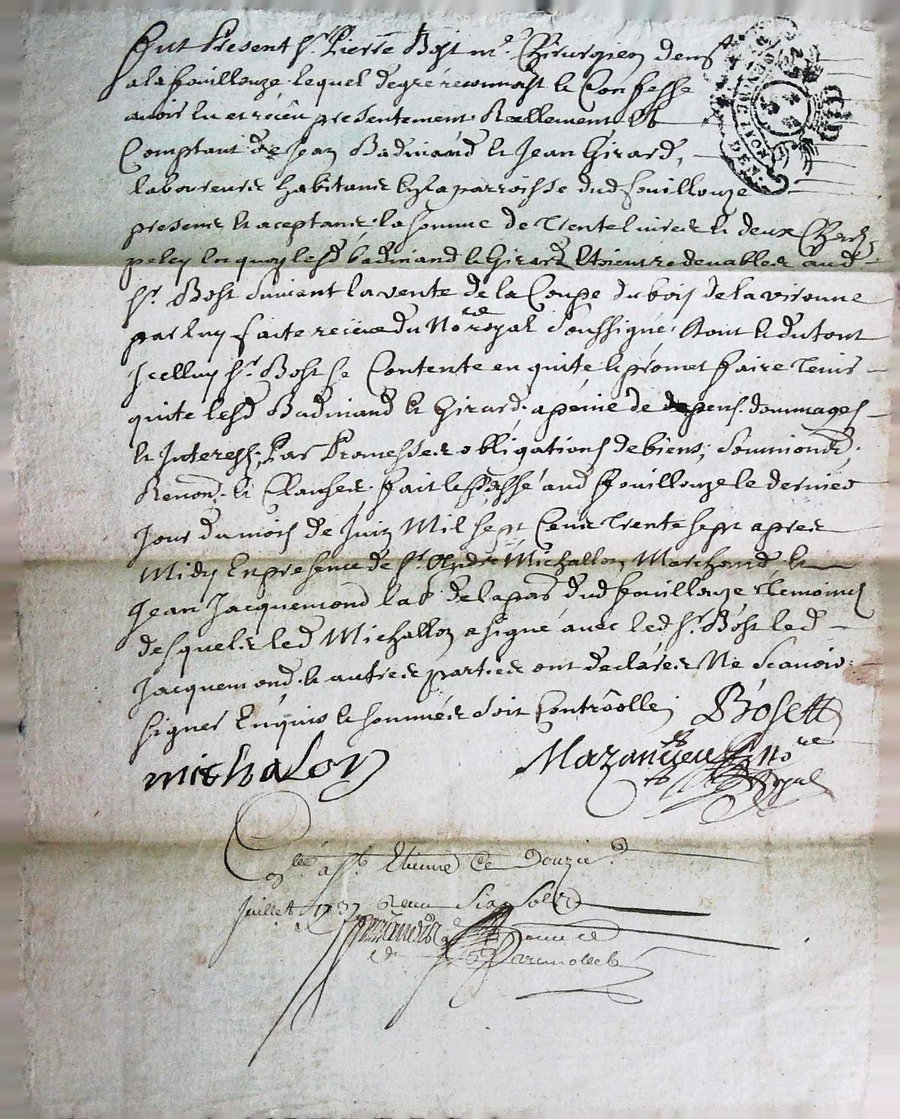 fut Present Sr. Pierre Bost me. Chirurgien demt
a la fouillouze lequel de gré reconnoist et Confesse
avoir eu et receu presentement Reellement et
Comptant de Jean Badinand et Jean Girard,
laboureurs habitans en la parroisse dud fouillouze
presens et aceptans la somme de Trente livres et deux
en quoy lesd badinand et Girard Etoient redevables aud
Sr. Bost suivant la vente de la Coupe du bois de la vironne
par luy faite receue du Nore royal Soussigné, dont et du tout
Jcelluy Sr. Bost se Contente en quite et promet faire Tenir
quite lesd Badinand et Girard, a peine de depens dommages
et Interests, Par Promesses obligations de biens, Soumiond,
Renond, et Clauses fait et Passé aud fouillouze le dernier
Jour du mois de Juin Mil sept Cens Trente sept apres
Midy En presence de Sr. Michallon Marchand et
Jean Jacquemond lab. de la par. dud fouillouze Temoins
desquels led Michallon a signé avec led Sr. Bost led
Jacquemond et autres parties ont declarés Ne Scavoir
signer Enquis et sommés Soit Controolle
Bosett
michalon
Mazandieu Nore
Royal
Collée a St. Etienne Ce Douzie.
Juillet 1737 Receu Six Sols